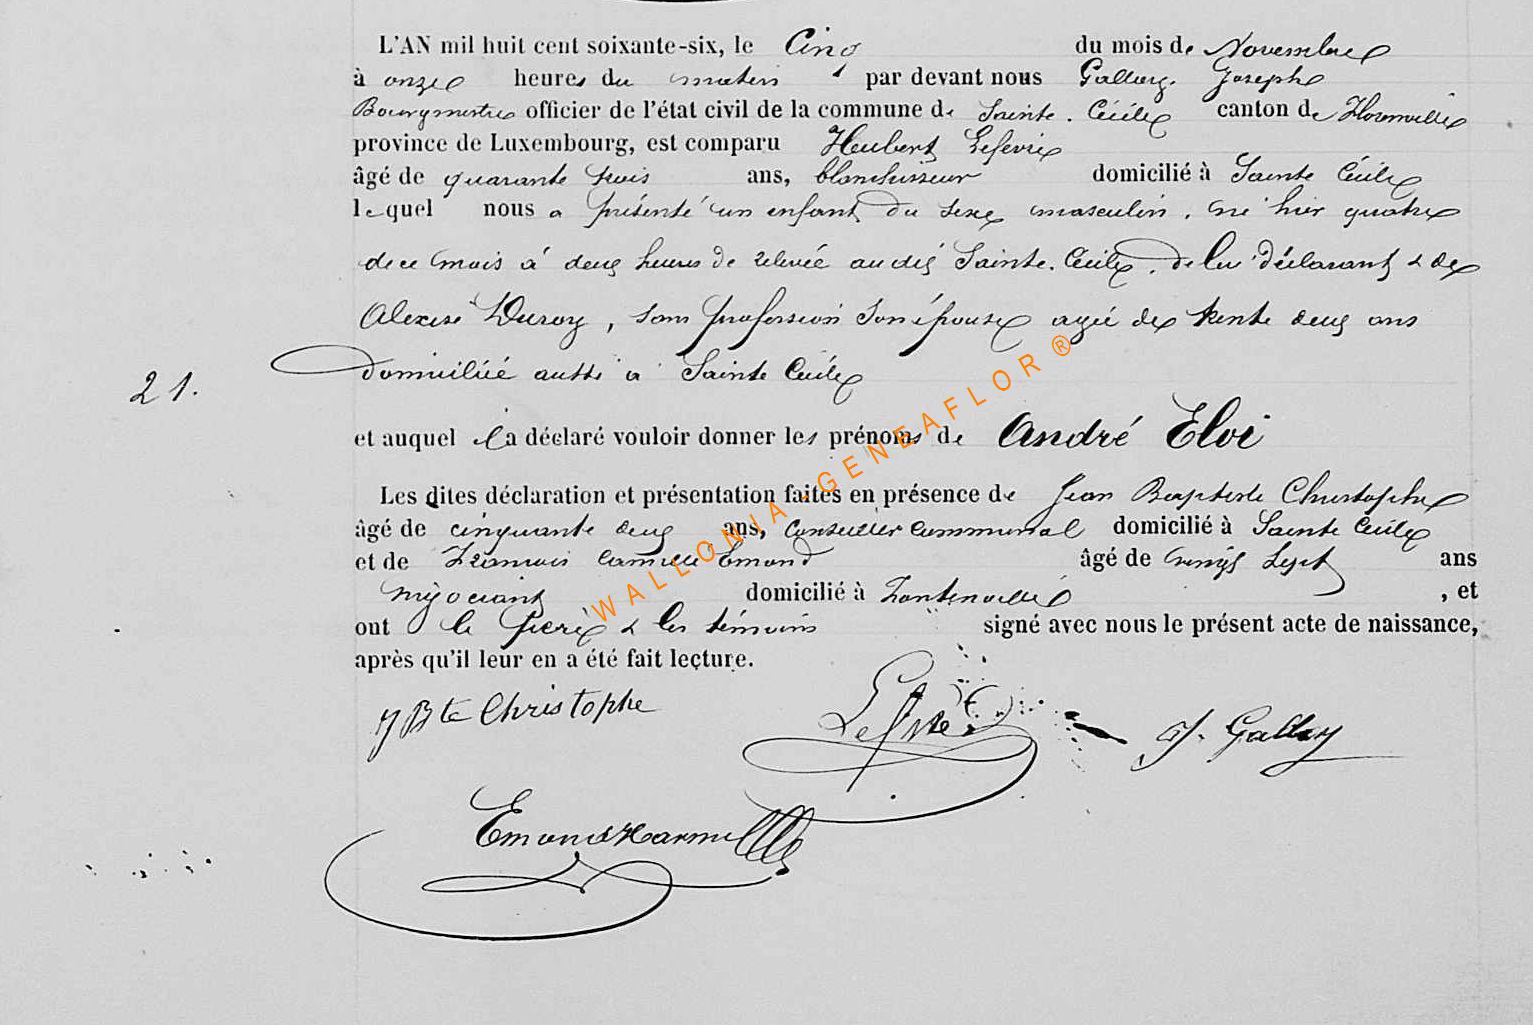 L'AN mil huit cent soixante-six, le Cinq du mois de Novembre
à onze heures du matin par devant nous Gallay Joseph
Bourgmestre officier de l'état civil de la commune de Sainte. Cécile canton de Florenville
province de Luxembourg, est comparu Heubert Lefevre
âgé de quarante trois ans, blanchisseur domicilié à Sainte Cécile
lequel nous a présenté un enfant du sexe masculin, né hier quatre
de ce mois à deux heures de relevée audit Sainte. Cécile, de lui déclarant & de
Alexise Duroy, sans profession son épouse agée de trente deux ans
21. domiciliée aussi à Sainte Cécile
et auquel il a déclaré vouloir donner les prénoms de André Eloi
Les dites déclaration et présentation faites en présence de Jean Baptiste Christophe
âgé de cinquante deux ans, Conseiller Communal domicilié à Sainte Cécile
et de François Camille Emond âgé de vingt sept ans
négociant domicilié à Fontenoille , et
ont le père & les témoins signé avec nous le présent acte de naissance,
après qu'il leur en a été fait lecture.
JBte Christophe Lefvre J. Gallay
Emond
WALLONIA-GENEAFLOR®